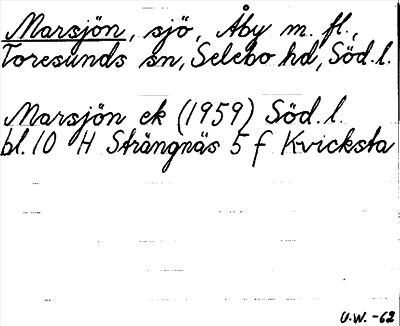 Marsjön, sjö, Åby m. fl.,
Toresunds sn, Selebo hd, Söd.l.
Marsjön ek (1959) Söd.l.
bl. 10 H Strängnäs 5 f Kvicksta
U.W. -62